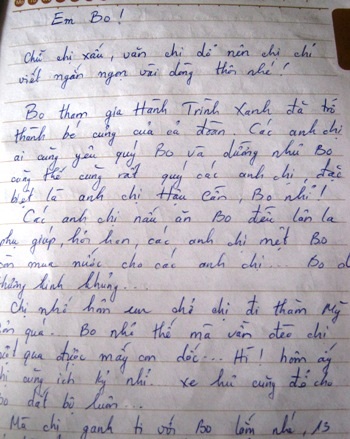 Em Bo !
Chữ chị xấu, văn chị dở nên chị chỉ
viết ngắn ngọn vài dòng thôi nhé !
Bo tham gia Hành Trình Xanh đã trở
thành bé cưng của cả đoàn. Các anh chị
ai cũng yêu quý Bo và dường như Bo
cũng thế cũng rất quý các anh chị, đặc
biệt là anh chị Hậu Cần, Bo nhỉ !
Các anh chị nấu ăn Bo đều lân la
phụ giúp, hỏi han, các anh chị mệt Bo
mua nước cho các anh chị Bo
khủng khủng...
Chị nhớ hôm em chở chị đi thăm Mỹ
qua. Bo nhỏ thế mà vẫn đèo chị
qua được mấy con dốc... Hí ! hôm ấy
cũng ích kỷ nhỉ. xe hư cũng để cho
Bo dắt bộ luôn...
Mà chị ganh tị với Bo lắm nhé, 13